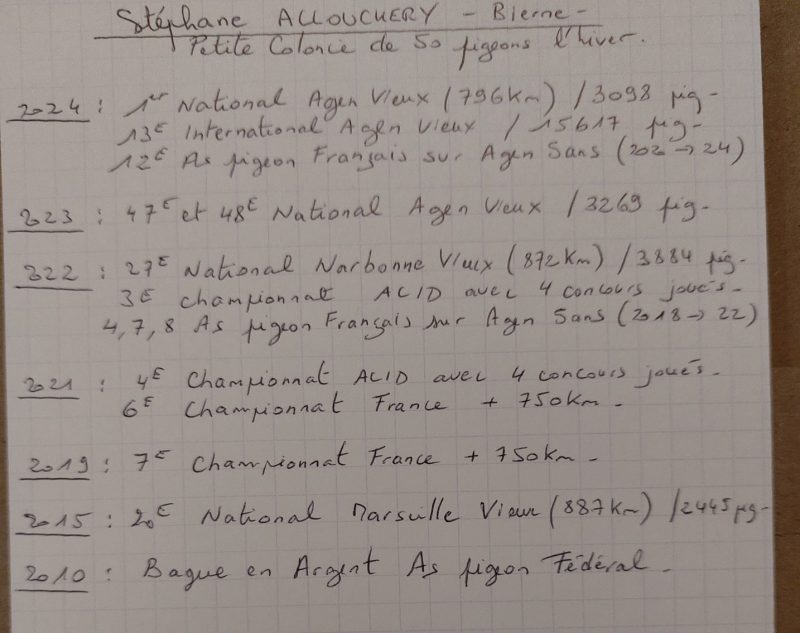 Stéphane ALLOUCHERY - Bierne -
Petite Colonie de 50 pigeons l'hiver.
2024 : 1er National Agen Vieux (796Km) / 3098 pig-
13E International Agen Vieux / 15617 pig-
12E As pigeon Français sur Agen 5ans (202 → 24)
2023 : 47E et 48E National Agen Vieux / 3269 pig-
2022 : 27E National Narbonne Vieux (872Km) / 3884 pig-
3E championnat ACID avec 4 concours joués-
4, 7, 8 As pigeon Français sur Agen 5ans (2018 → 22)
2021 : 4E Championnat ACID avec 4 concours joués-
6E Championnat France + 750Km-
2019 : 7E Championnat France + 750Km-
2015 : 20E National Marseille Vieux (887Km) / 2445 pig-
2010 : Bague en Argent As pigeon Fédéral-